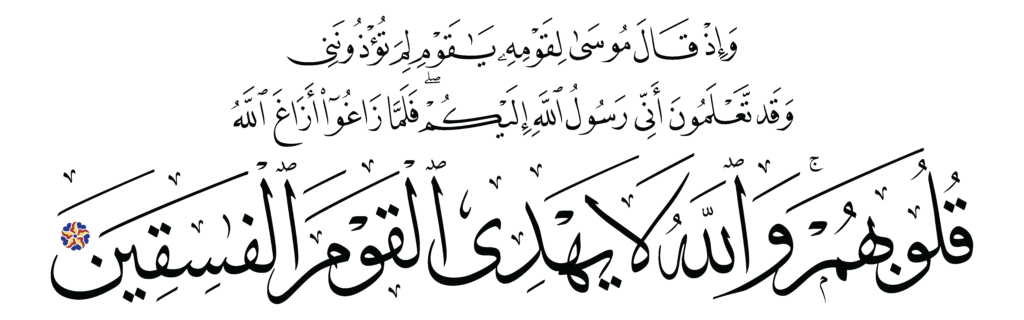 وَإِذْ قَالَ مُوسَىٰ لِقَوْمِهِۦ يَـٰقَوْمِ لِمَ تُؤْذُونَنِى
وَقَد تَّعْلَمُونَ أَنِّى رَسُولُ ٱللَّهِ إِلَيْكُمْ ۖ فَلَمَّا زَاغُوٓا۟ أَزَاغَ ٱللَّهُ
قُلُوبَهُمْ ۚ وَٱللَّهُ لَا يَهْدِى ٱلْقَوْمَ ٱلْفَـٰسِقِينَ